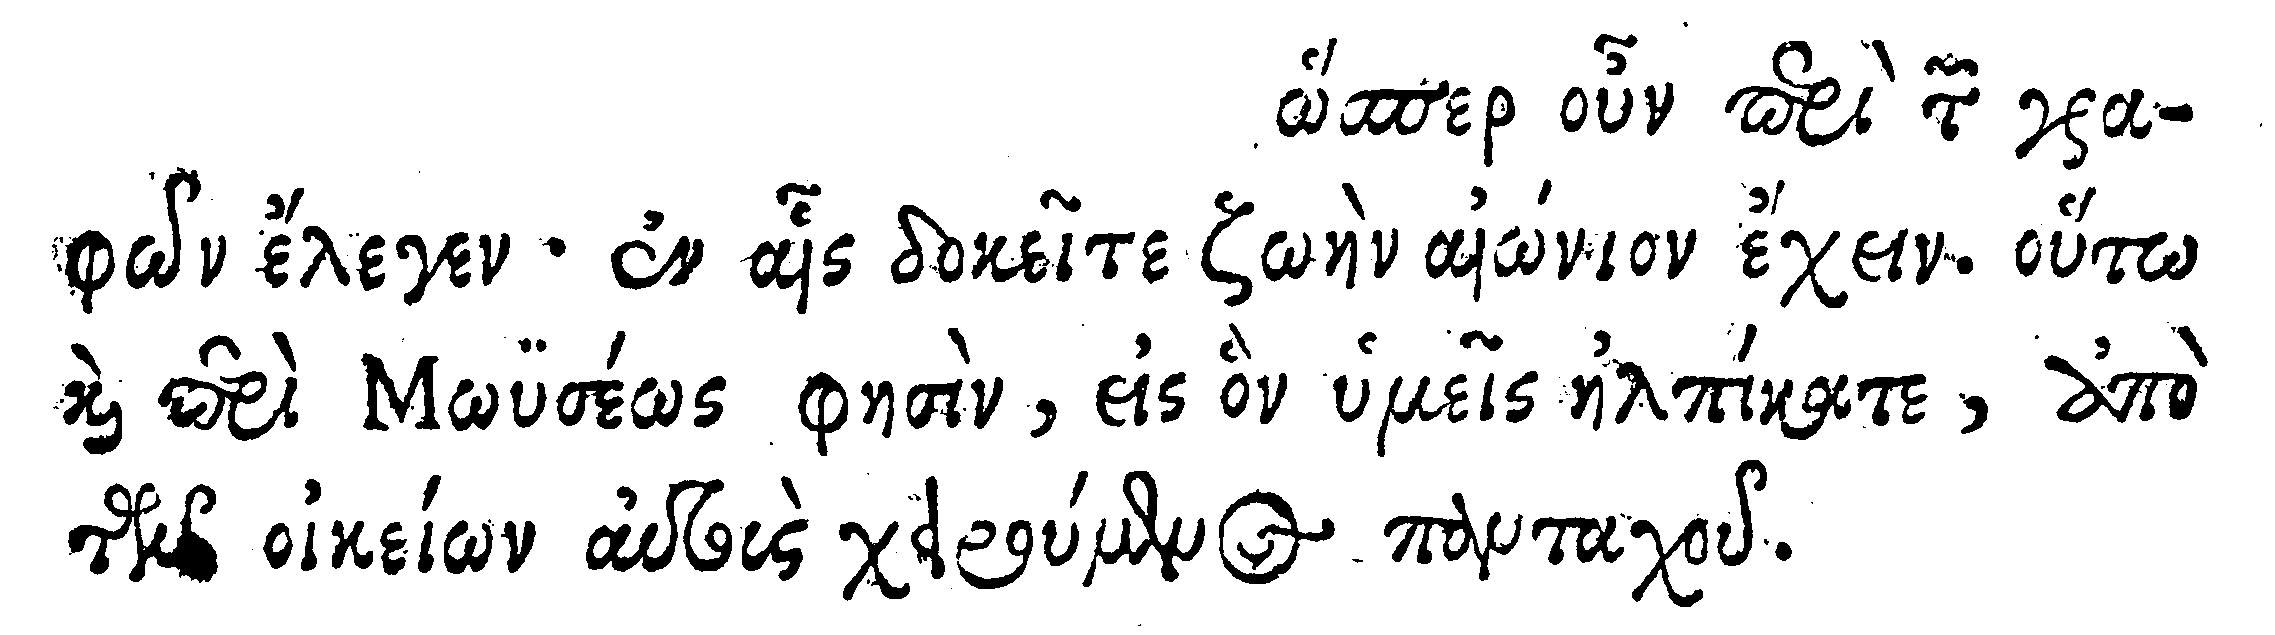 ὥσπερ οὖν περὶ τῶν γρα-
φῶν ἔλεγεν· ἐν αἷς δοκεῖτε ζωὴν αἰώνιον ἔχειν. οὕτω
καὶ περὶ Μωϋσέως φησὶν, εἰς ὃν ὑμεῖς ἠλπίκατε, ἀπὸ
τῶν οἰκείων αὐτοὺς χειρούμενος πανταχοῦ.